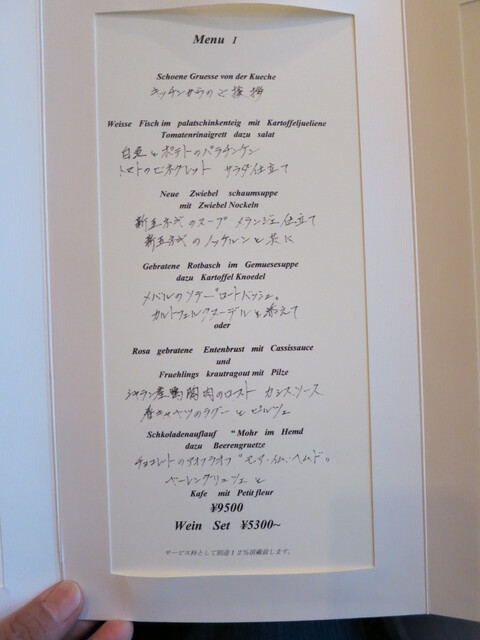 Menu I
Schoene Gruesse von der Kueche
キッチンからのご挨拶
Weisse Fisch im palatschinkenteig mit Kartoffeljueliene
Tomatenrinaigrett dazu salat
白魚とポテトのパラチンケン
トマトのビネグレット サラダ仕立て
Neue Zwiebel schaumsuppe
mit Zwiebel Nockeln
新玉ネギのスープ メランジェ仕立て
新玉ネギのノッケルンと共に
Gebratene Rotbasch im Gemuesesuppe
dazu Kartoffel Knoedel
メバルのソテー ロートバッシェ。
カルトッフェルクヌーデルを添えて
oder
Rosa gebratene Entenbrust mit Cassissauce
und
Fruehlings krautragout mit Pilze
シャラン産鴨胸肉のロースト カシスソース
春キャベツのラグーとピルツェ
Schkoladenauflauf “Mohr im Hemd
dazu Beerengruetze
チョコレートのアオフラオフ “モア・イム・ヘムド。
ベーレングリュッツェと
Kafe mit Petit fleur
¥9500
Wein Set ¥5300~
サービス料として別途12%頂戴致します。